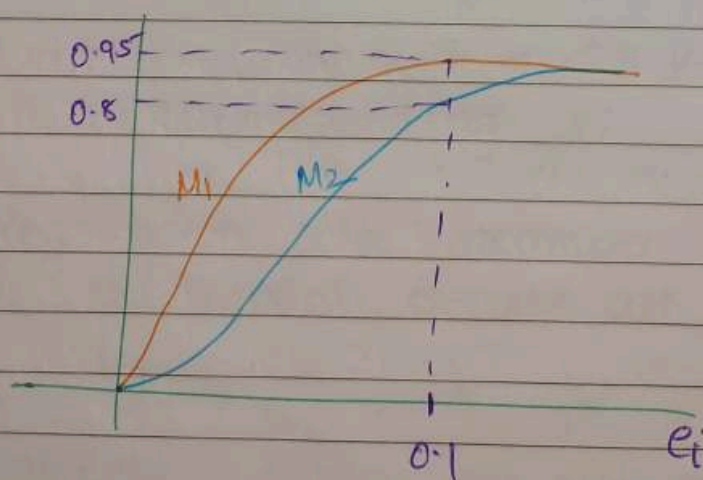 0.95
0.8
M1
M2
0.1
ei